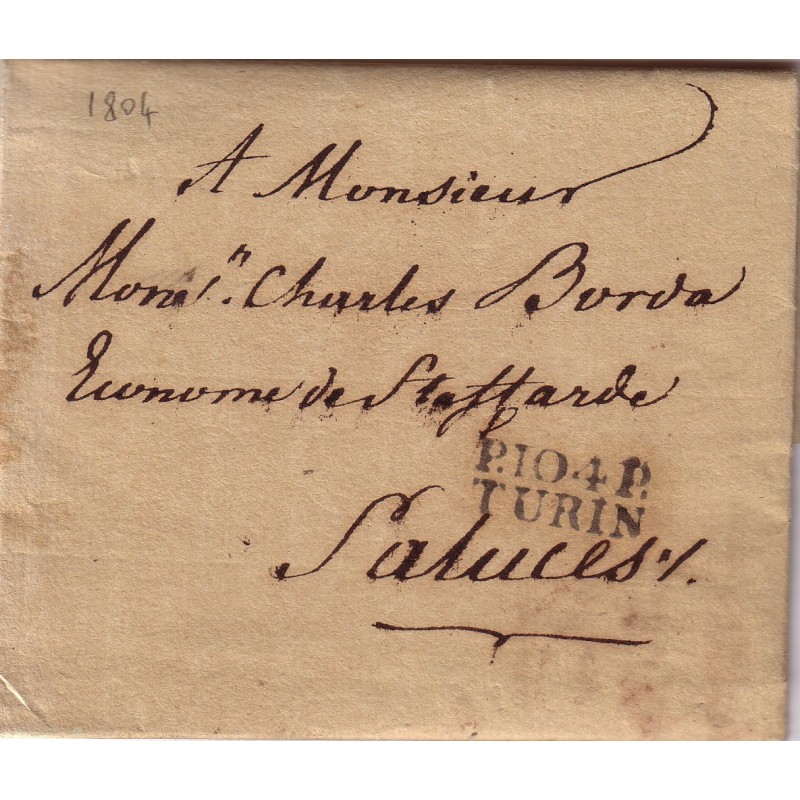 1804
A Monsieur
Mons.r Charles Borda
Econome de Staffarde
P.104P.
TURIN
Saluces ./.